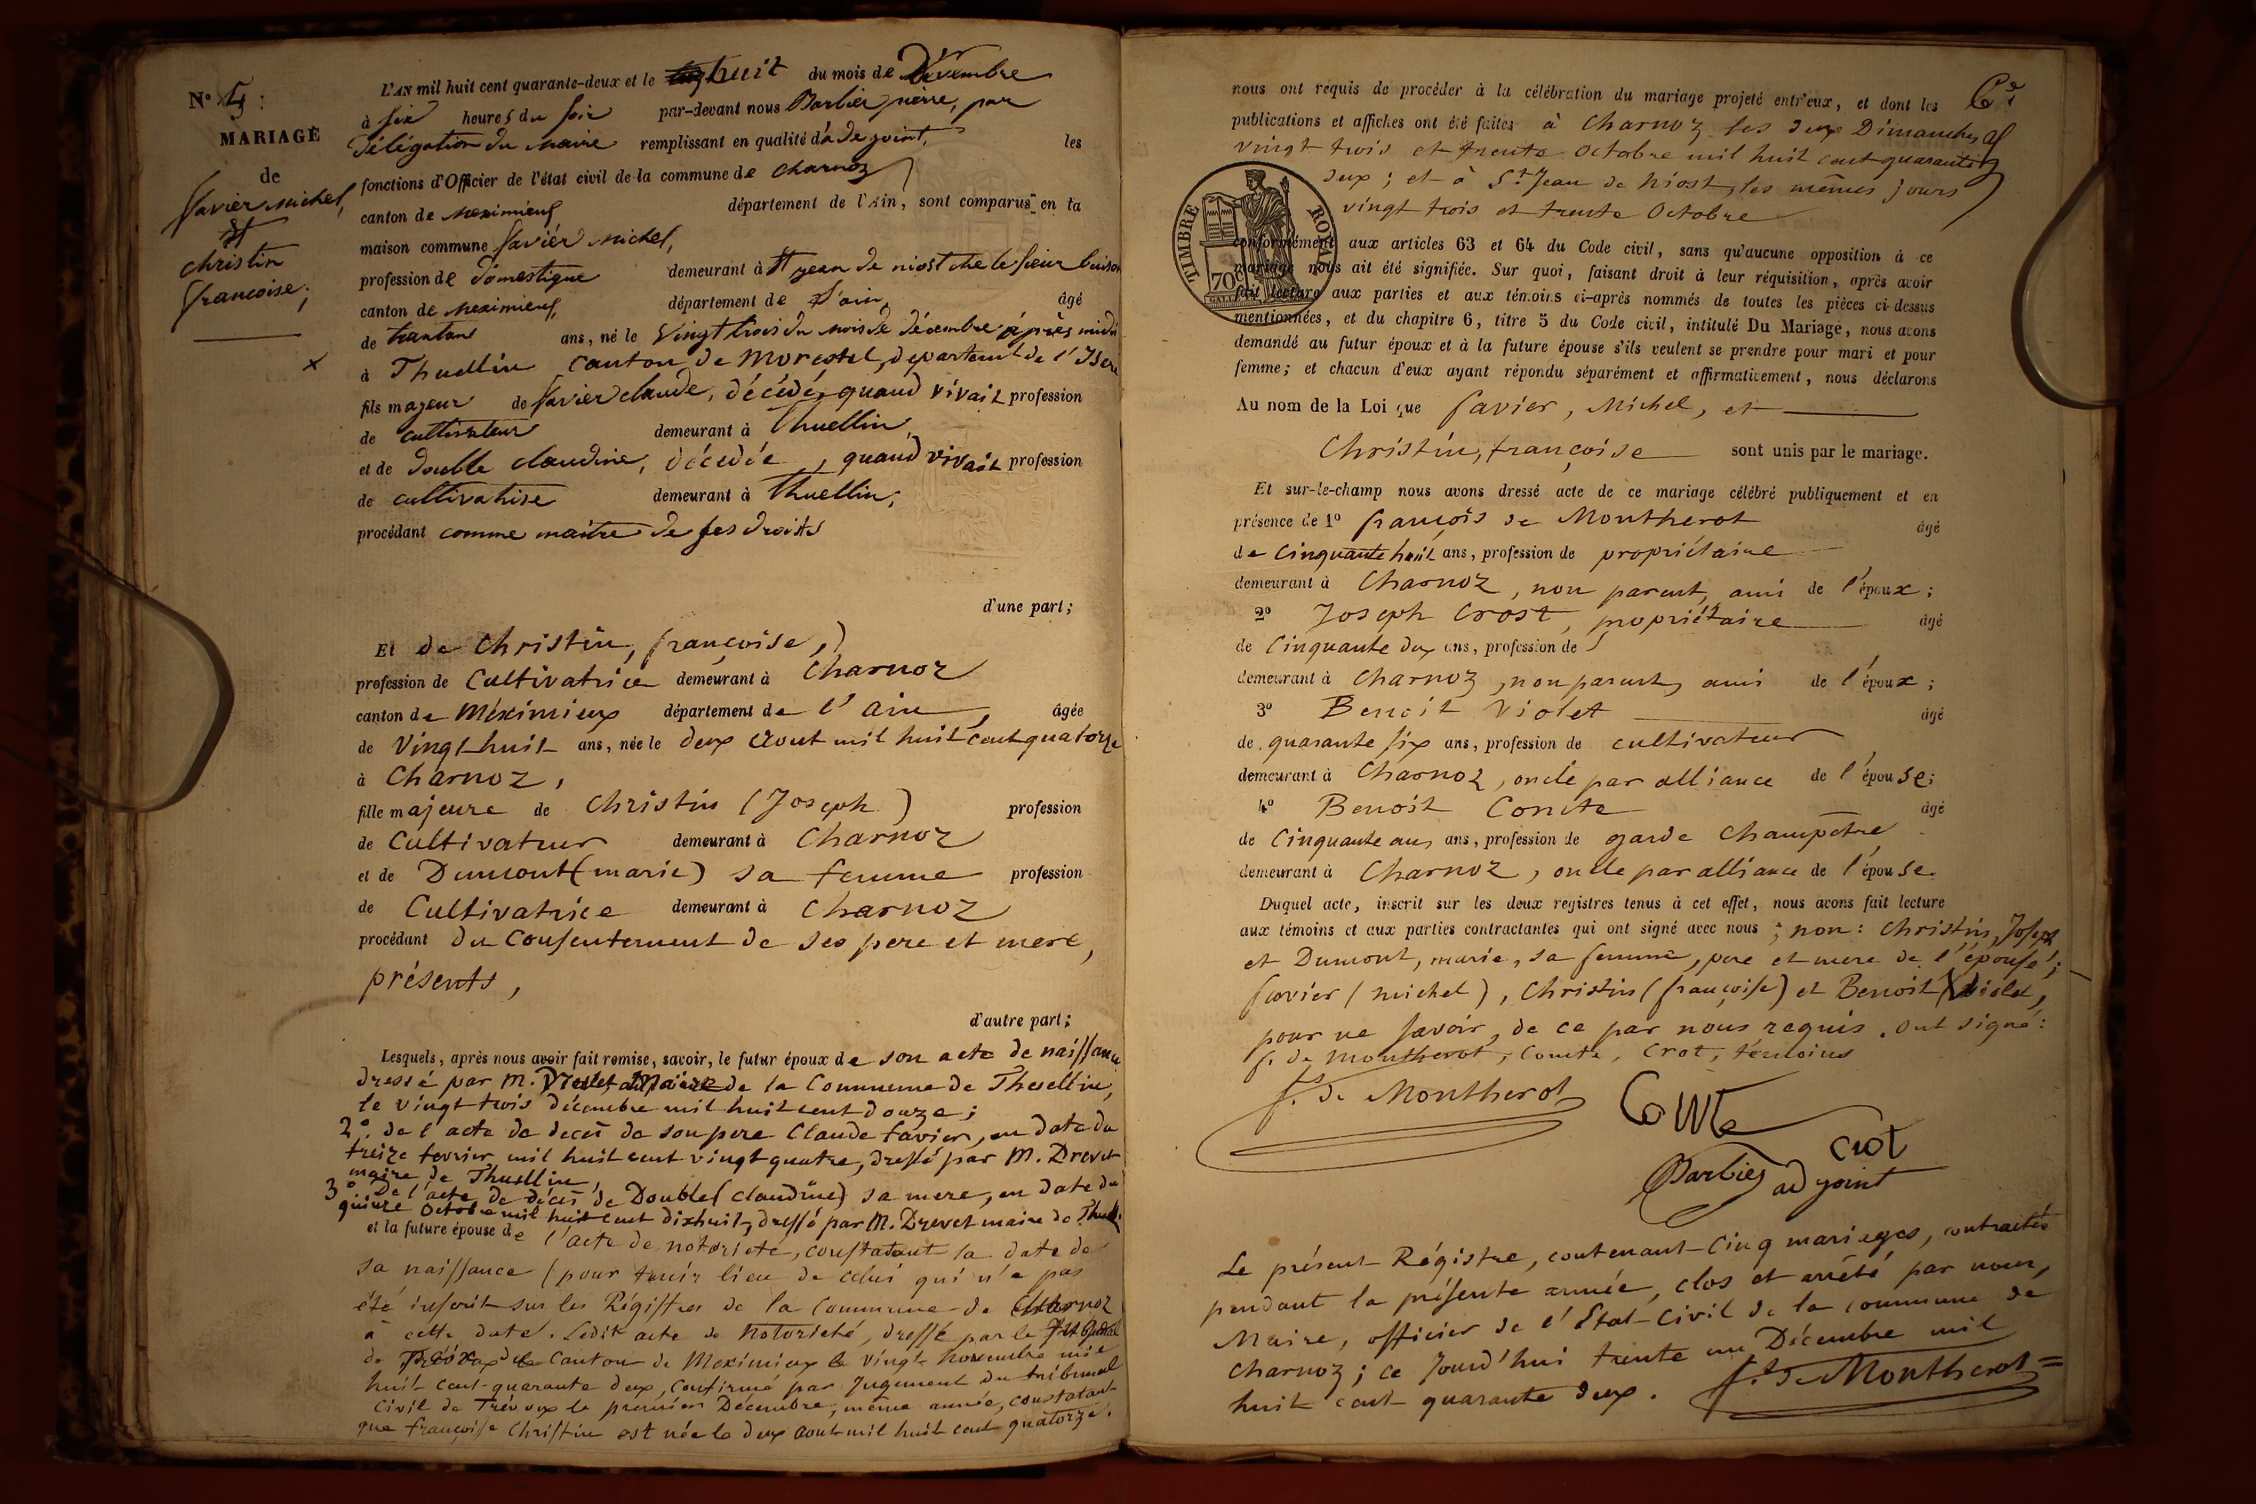 N° 5 :
MARIAGE
de
Favier Michel,
et
Christin
françoise ;
L'AN mil huit cent quarante-deux et le huit du mois de Décembre
à six heures du soir par-devant nous Barbier pierre, par
délégation du maire remplissant en qualité d'adejoint, les
fonctions d'Officier de l'état civil de la commune de Charnoz
canton de meximieux département de l'Ain, sont comparus en la
maison commune Favier Michel,
profession de domestique demeurant à St jean de niost che le sieur buison
canton de meximieux, département de l'ain, âgé
de trantans ans, né le vingt trois du mois de décembre après midi
à Thuellin canton de Morestel, département de l'Isere
fils majeur de Favier claude, décédé, quand vivait profession
de cultivateur demeurant à Thuellin,
et de double claudine, décédée, quand vivait profession
de cultivatrise demeurant à Thuellin,
procédant comme maitre de ses droits
d'une part ;
Et de Christin, françoise,
profession de Cultivatrice demeurant à Charnoz
canton de Méximieux département de l'ain, âgée
de Vingt huit ans, née le deux Aout mil huit cent quatorze
à Charnoz,
fille majeure de Christin (Joseph) profession
de Cultivateur demeurant à Charnoz
et de Dumont (marie) sa femme profession
de Cultivatrice demeurant à Charnoz
procédant du Consentement de ses pere et mere,
présents,
d'autre part ;
Lesquels, après nous avoir fait remise, savoir, le futur époux de son acte de naissance
dressé par M. de la Commune de Thuellin,
le vingt trois décembre mil huit cent douze ;
2° de l'acte de decès de son pere Claude favier, en date du
treize fevrier mil huit cent vingt quatre, dressé par M. Drevet
maire de Thuellin,
3° De l'acte de décès de Double (claudine) sa mere, en date du
quinze Octobre mil huit cent dixhuit, dressé par M. Drevet maire de Thuell.
et la future épouse de l'acte de notorieté, constatant la date de
sa naissance (pour tenir lieu de celui qui n'a pas
été inscrit sur les Régistres de la Commune de Charnoz
à cette date. Ledit acte de notorieté, dressé par le
de du Canton de Meximieux le vingt novembre mil
huit cent quarante deux, confirmé par Jugement du tribunal
civil de Trévoux le premier Décembre, même année, constatant
que françoise Christin est née le deux aout mil huit cent quatorze.
nous ont requis de procéder à la célébration du mariage projeté entr'eux, et dont les
publications et affiches ont été faites à Charnoz les deux Dimanches
vingt trois et trente Octobre mil huit cent quarante
deux ; et à St Jean de Niost, les mêmes jours
vingt trois et trente Octobre
TIMBRE ROYAL
70c
conformément aux articles 63 et 64 du Code civil, sans qu'aucune opposition à ce
mariage nous ait été signifiée. Sur quoi, faisant droit à leur réquisition, après avoir
fait lecture aux parties et aux témoins ci-après nommés de toutes les pièces ci-dessus
mentionnées, et du chapitre 6, titre 5 du Code civil, intitulé Du Mariage, nous avons
demandé au futur époux et à la future épouse s'ils veulent se prendre pour mari et pour
femme ; et chacun d'eux ayant répondu séparément et affirmativement, nous déclarons
Au nom de la Loi que Favier, Michel, et
Christin, françoise sont unis par le mariage.
Et sur-le-champ nous avons dressé acte de ce mariage célébré publiquement et en
présence de 1° françois de Montherot âgé
de Cinquante huit ans, profession de propriétaire
demeurant à Charnoz, non parent, ami de l'époux ;
2° Joseph Crost, propriétaire âgé
de Cinquante deux ans, profession de
demeurant à Charnoz, non parent, ami de l'époux ;
3° Benoit Violet âgé
de quarante six ans, profession de cultivateur
demeurant à Charnoz, oncle par alliance de l'épouse ;
4° Benoit Comte âgé
de Cinquante ans ans, profession de garde Champêtre
demeurant à Charnoz, oncle par alliance de l'épouse.
Duquel acte, inscrit sur les deux registres tenus à cet effet, nous avons fait lecture
aux témoins et aux parties contractantes qui ont signé avec nous ; non : Christin, Joseph
et Dumont, marie, sa femme, pere et mere de l'épouse ;
favier (michel), Christin (françoise) et Benoit Violet,
pour ne savoir, de ce par nous requis. Ont signé :
f. de Montherot, Comte, Crot, témoins
f. de Montherot
Comte
Crot
Barbier adjoint
Le présent Régistre, contenant Cinq mariages, contractés
pendant la présente année, clos et arrêté par nous,
Maire, officier de l'Etat-Civil de la commune de
Charnoz ; ce Jourd'hui trente un Décembre mil
huit cent quarante deux. f. de Montherot